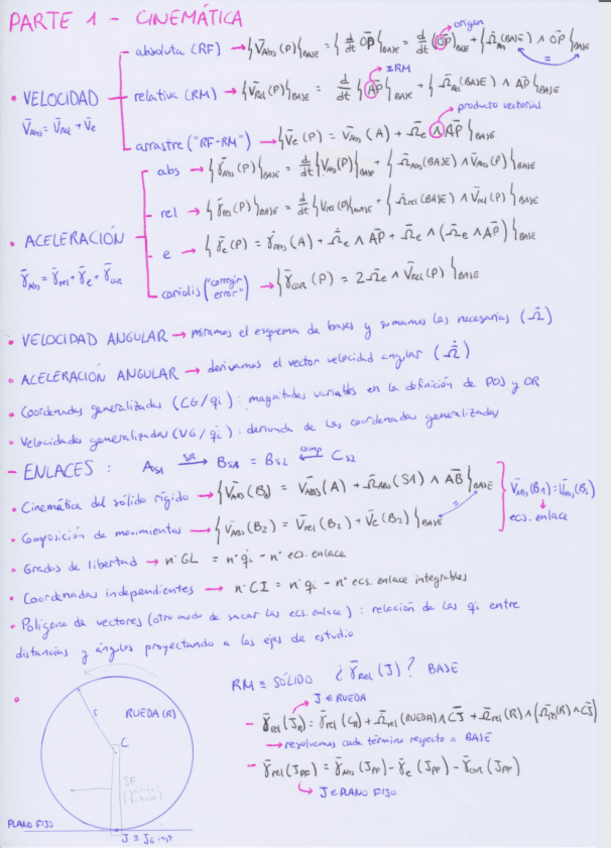 PARTE 1 - CINEMÁTICA
origen
absoluta (RF) → {V̄Abs(P)}BASE = {d/dt OP̄}BASE = d/dt {OP̄}BASE + {Ω̄Abs(BASE) ∧ OP̄}BASE
• VELOCIDAD
relativa (RM) → {V̄Rel(P)}BASE = d/dt {AP̄}BASE + {Ω̄Rel(BASE) ∧ AP̄}BASE
∈RM
V̄Abs = V̄Rel + V̄e
producto vectorial
arrastre ("RF-RM") → {V̄e(P) = V̄Abs(A) + Ω̄e ∧ AP̄}BASE
abs → {γ̄Abs(P)}BASE = d/dt {V̄Abs(P)}BASE + {Ω̄Abs(BASE) ∧ V̄Abs(P)}BASE
rel → {γ̄Rel(P)}BASE = d/dt {V̄Rel(P)}BASE + {Ω̄rel(BASE) ∧ V̄rel(P)}BASE
• ACELERACIÓN
e → {γ̄e(P) = γ̄Abs(A) + Ω̄̇e ∧ AP̄ + Ω̄e ∧ (Ω̄e ∧ AP̄)}BASE
γ̄Abs = γ̄rel + γ̄e + γ̄cor
coriolis ("corregir error") → {γ̄cor(P) = 2Ω̄e ∧ V̄Rel(P)}BASE
• VELOCIDAD ANGULAR → miramos el esquema de bases y sumamos las necesarias (Ω̄)
• ACELERACIÓN ANGULAR → derivamos el vector velocidad angular (Ω̄̇)
• Coordenadas generalizadas (CG/qi) : magnitudes variables en la definición de POS y OR
• Velocidades generalizadas (VG/q̇i) : derivada de las coordenadas generalizadas
- ENLACES : AS1 →SR BS1 = BS2 ←comp CS2
• Cinemática del sólido rígido → {V̄Abs(B1) = V̄Abs(A) + Ω̄Abs(S1) ∧ AB̄}BASE
V̄Abs(B1) = V̄Abs(B2)
• Composición de movimientos → {V̄Abs(B2) = V̄rel(B2) + V̄e(B2)}BASE
ecs. enlace
• Grados de libertad → nºGL = nº q̇i - nº ecs. enlace
• Coordenadas independientes → nºCI = nº qi - nº ecs. enlace integrables
• Polígono de vectores (otro modo de sacar las ecs. enlace) : relación de las qi entre
distancias y ángulos proyectando a los ejes de estudio
RM ≡ SÓLIDO ¿γ̄Rel(J)? BASE
J ∈ RUEDA
- γ̄Rel(JR) = γ̄rel(CR) + Ω̄̇rel(RUEDA) ∧ CJ̄ + Ω̄rel(R) ∧ (Ω̄rel(R) ∧ CJ̄)
→ resolvemos cada término respecto a BASE
- γ̄rel(JPF) = γ̄Abs(JPF) - γ̄e(JPF) - γ̄cor(JPF)
J ∈ PLANO FIJO
r
RUEDA (R)
C
PLANO FIJO